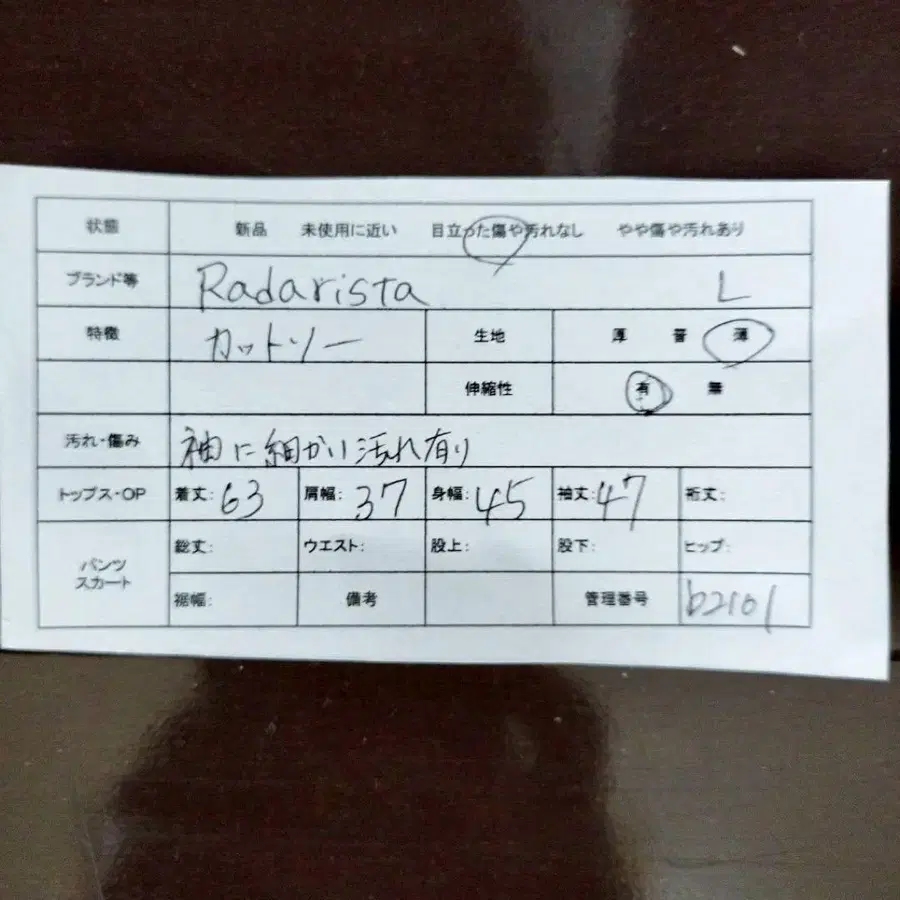 状態 新品 未使用に近い 目立った傷や汚れなし やや傷や汚れあり
ブランド等 Radarista L
特徴 カットソー 生地 厚 普 薄
伸縮性 有 無
汚れ・傷み 袖に細かい汚れ有り
トップス・OP 着丈: 63 肩幅: 37 身幅: 45 袖丈: 47 裄丈:
パンツ スカート 総丈: ウエスト: 股上: 股下: ヒップ:
裾幅: 備考 管理番号 b2101